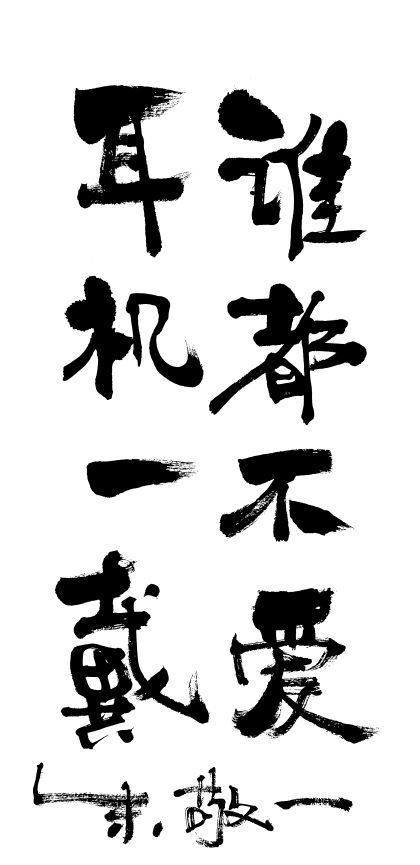 耳机一戴
谁都不爱
朱敬一